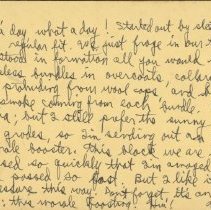 's day what a day! Started out by sle
regular fit. We just froze in our
stood in formation all you would
less bundles in overcoats, colla
protruding from wool caps, and
smoke coming from each bundle.
but I still prefer the sunny
grades, so I'm sending out
ale booster. This block we are
sed so quickly that I'm amazed
passed so fast. But I like
this way. Don't forget, it's an
: this morale boosting! Hin!